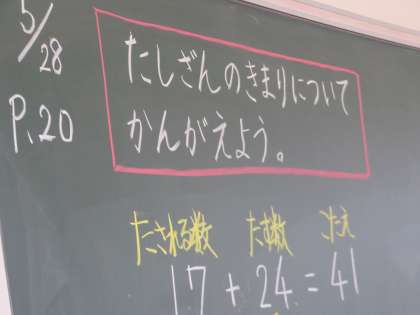 5/28
P.20
たしざんのきまりについて
かんがえよう。
たされる数 たす数 こたえ
17 + 24 = 41